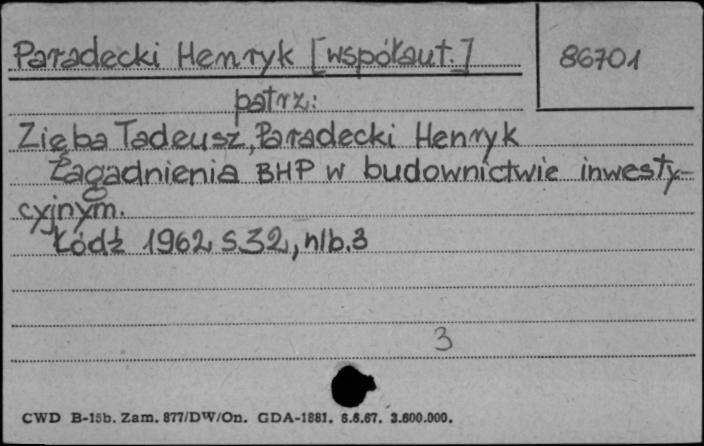 Paradecki Henryk [współaut.]
86701
patrz:
Zięba Tadeusz, Paradecki Henryk
Zagadnienia BHP w budownictwie inwesty-
cyjnym.
Łódź 1962 s.32, nlb.3
3
CWD B-15b. Zam. 877/DW/On. GDA-1881. 6.6.67. 3.600.000.